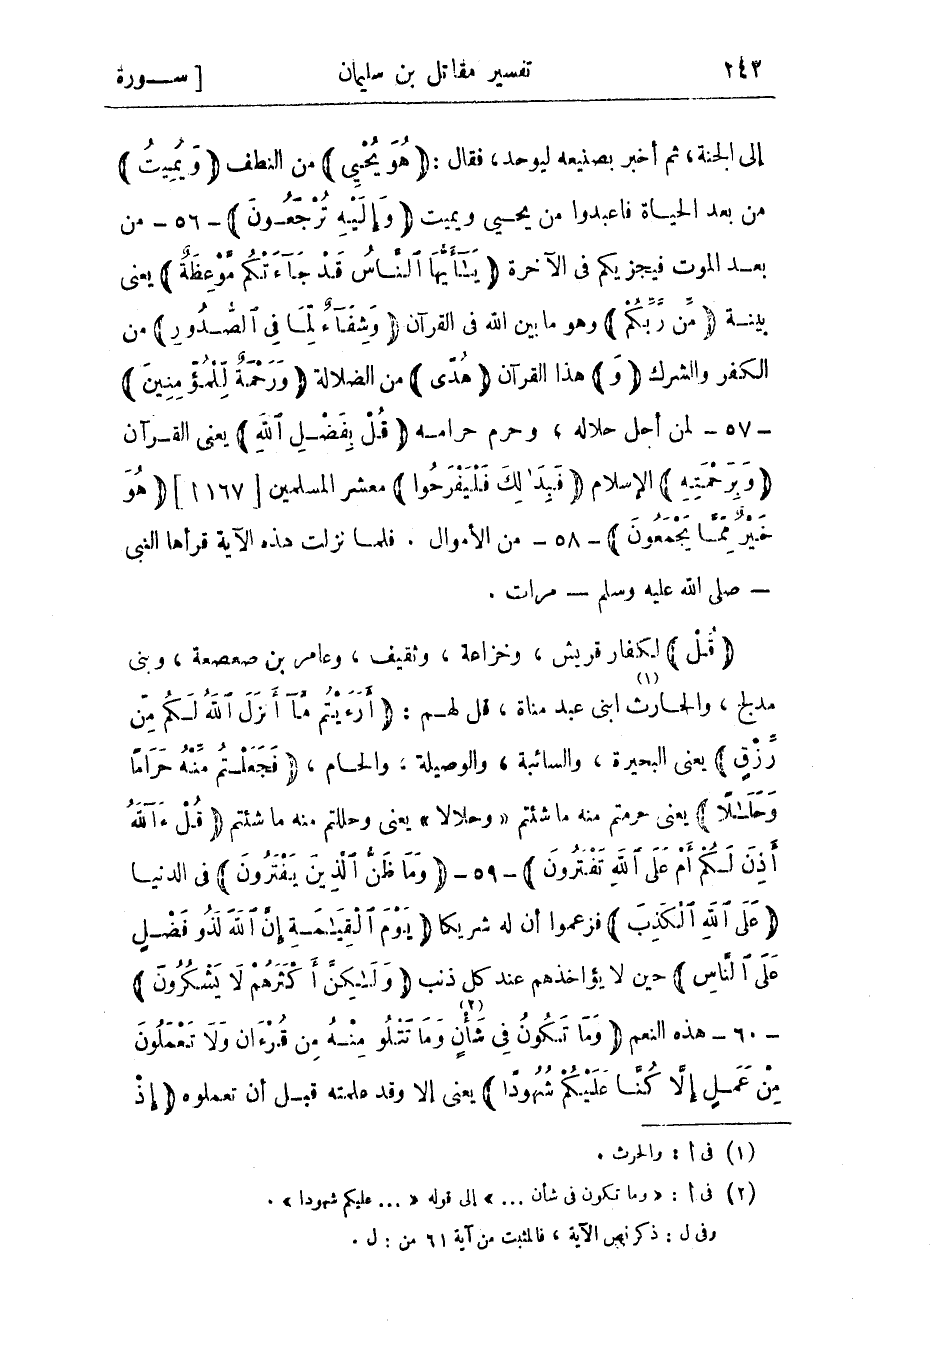 ٢٤٣ تفسير مقاتل بن سليمان [ ســورة
إلى الجنة، ثم أخبر بصنيعه ليوحد، فقال : ﴿ هُوَ يُحْيِي ﴾ من النطف ﴿ وَيُمِيتُ ﴾
من بعد الحياة فاعبدوا من يحيى ويميت ﴿ وَإِلَيْهِ تُرْجَعُونَ ﴾ - ٥٦ - من
بعد الموت فيجزيكم فى الآخرة ﴿ يَٰٓأَيُّهَا ٱلنَّاسُ قَدْ جَآءَتْكُم مَّوْعِظَةٌ ﴾ يعنى
بينة ﴿ مِّن رَّبِّكُمْ ﴾ وهو ما بين الله فى القرآن ﴿ وَشِفَآءٌ لِّمَا فِى ٱلصُّدُورِ ﴾ من
الكفر والشرك ﴿ وَ ﴾ هذا القرآن ﴿ هُدًى ﴾ من الضلالة ﴿ وَرَحْمَةٌ لِّلْمُؤْمِنِينَ ﴾
- ٥٧ - لمن أحل حلاله ، وحرم حرامه ﴿ قُلْ بِفَضْلِ ٱللَّهِ ﴾ يعنى القرآن
﴿ وَبِرَحْمَتِهِ ﴾ الإسلام ﴿ فَبِذَٰلِكَ فَلْيَفْرَحُوا ﴾ معشر المسلمين [ ١٦٧ ا ] ﴿ هُوَ
خَيْرٌ مِّمَّا يَجْمَعُونَ ﴾ - ٥٨ - من الأموال . فلما نزلت هذه الآية قرأها النبى
— صلى الله عليه وسلم — مرات .
﴿ قُلْ ﴾ لكفار قريش ، وخزاعة ، وثقيف ، وعامر بن صعصعة ، وبنى
مدلج ، والحارث (١) ابنى عبد مناة ، قل لهم : ﴿ أَرَءَيْتُم مَّآ أَنزَلَ ٱللَّهُ لَكُم مِّن
رِّزْقٍ ﴾ يعنى البحيرة ، والسائبة ، والوصيلة ، والحام ، ﴿ فَجَعَلْتُم مِّنْهُ حَرَامًا
وَحَلَٰلًا ﴾ يعنى حرمتم منه ما شئتم « وحلالا » يعنى وحللتم منه ما شئتم ﴿ قُلْ ءَآللَّهُ
أَذِنَ لَكُمْ أَمْ عَلَى ٱللَّهِ تَفْتَرُونَ ﴾ - ٥٩ - ﴿ وَمَا ظَنُّ ٱلَّذِينَ يَفْتَرُونَ ﴾ فى الدنيا
﴿ عَلَى ٱللَّهِ ٱلْكَذِبَ ﴾ فزعموا أن له شريكا ﴿ يَوْمَ ٱلْقِيَٰمَةِ إِنَّ ٱللَّهَ لَذُو فَضْلٍ
عَلَى ٱلنَّاسِ ﴾ حين لا يؤاخذهم عند كل ذنب ﴿ وَلَٰكِنَّ أَكْثَرَهُمْ لَا يَشْكُرُونَ ﴾
- ٦٠ - هذه النعم ﴿ وَمَا تَكُونُ فِى شَأْنٍ (٢) وَمَا تَتْلُو مِنْهُ مِن قُرْءَانٍ وَلَا تَعْمَلُونَ
مِنْ عَمَلٍ إِلَّا كُنَّا عَلَيْكُمْ شُهُودًا ﴾ يعنى إلا وقد علمته قبل أن تعملوه ﴿ إِذْ
(١) فى أ : والحرث .
(٢) فى أ : « وما تكون فى شأن ... » إلى قوله « ... عليكم شهودا » .
وفى ل : ذكر نص الآية ، فالمثبت من آية ٦١ من : ل .